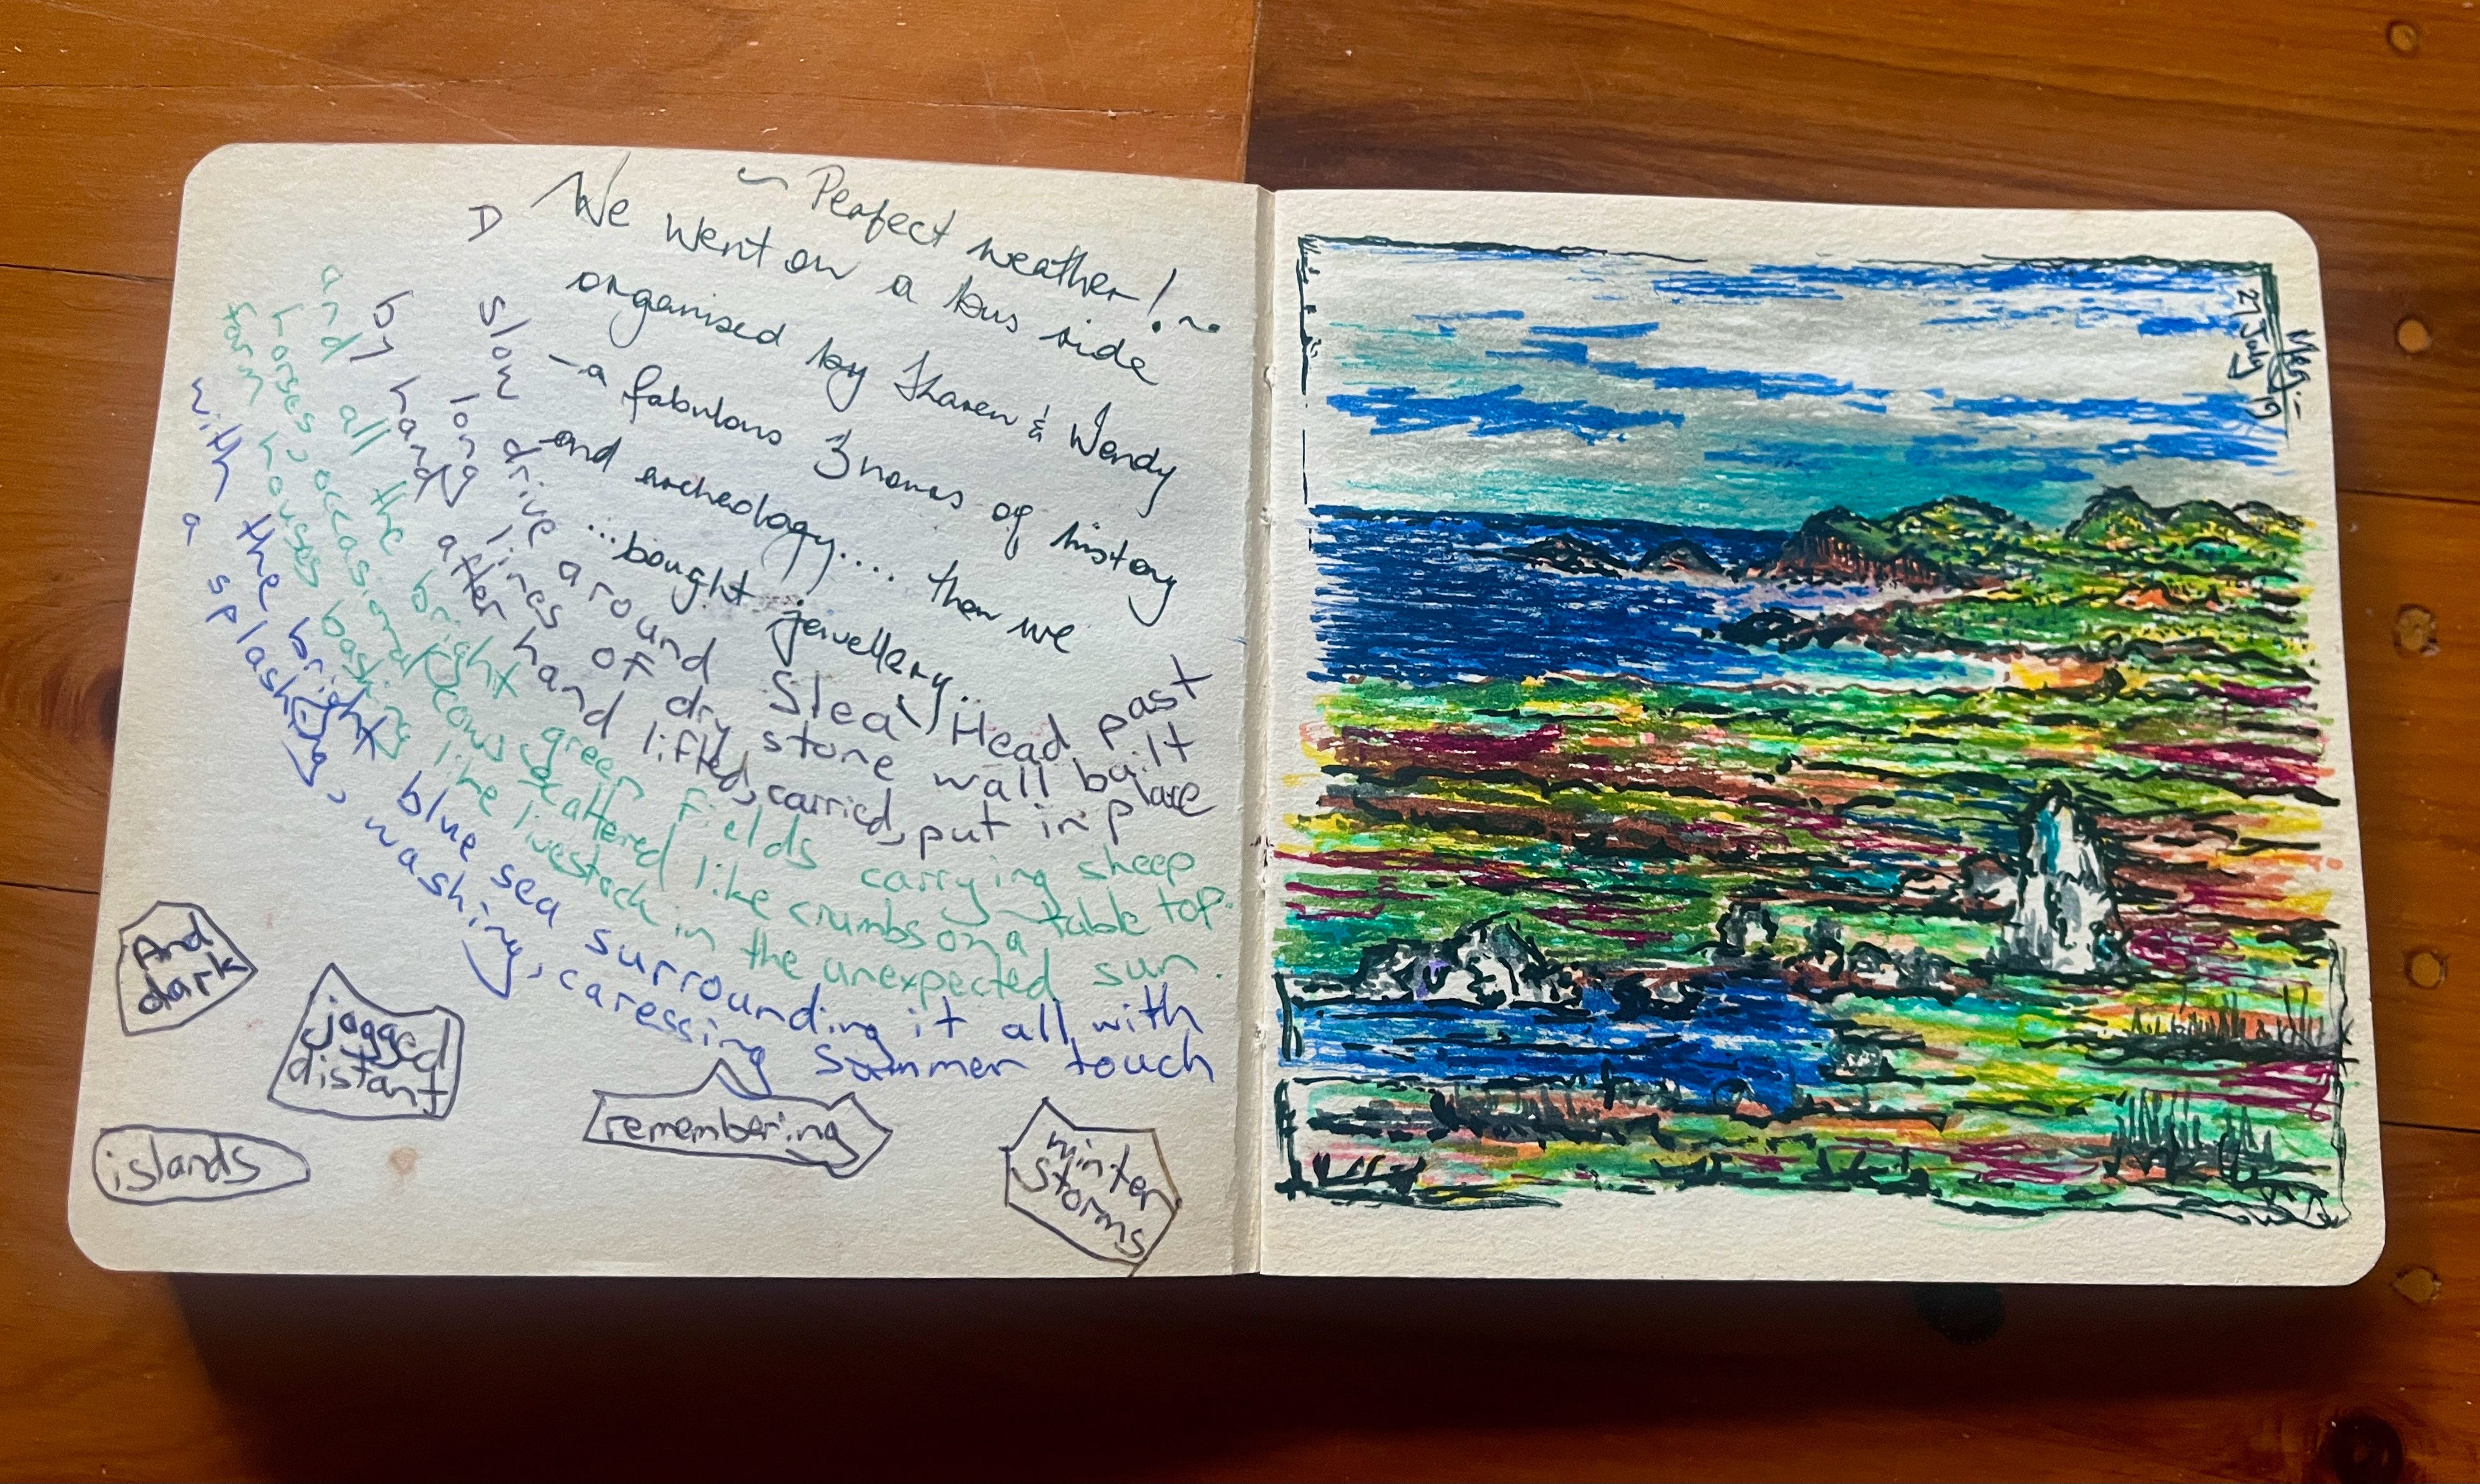 ~ Perfect weather! ~
We went on a bus ride
organised by Sharen & Wendy
- a fabulous 3 hours of history
and archeology.... then we
...bought jewellery...
D
slow drive around Slea Head past
long lines of dry stone wall built
by hand after hand lifted, carried, put in place
and all the bright green fields carrying sheep
horses & occasional cows scattered like crumbs on a table top.
farm houses basking like livestock in the unexpected sun.
with the bright blue sea surrounding it all with
a splashing, washing, caressing summer touch
And
dark
jagged
distant
islands
remembering
winter
storms
Meg
27 July 19